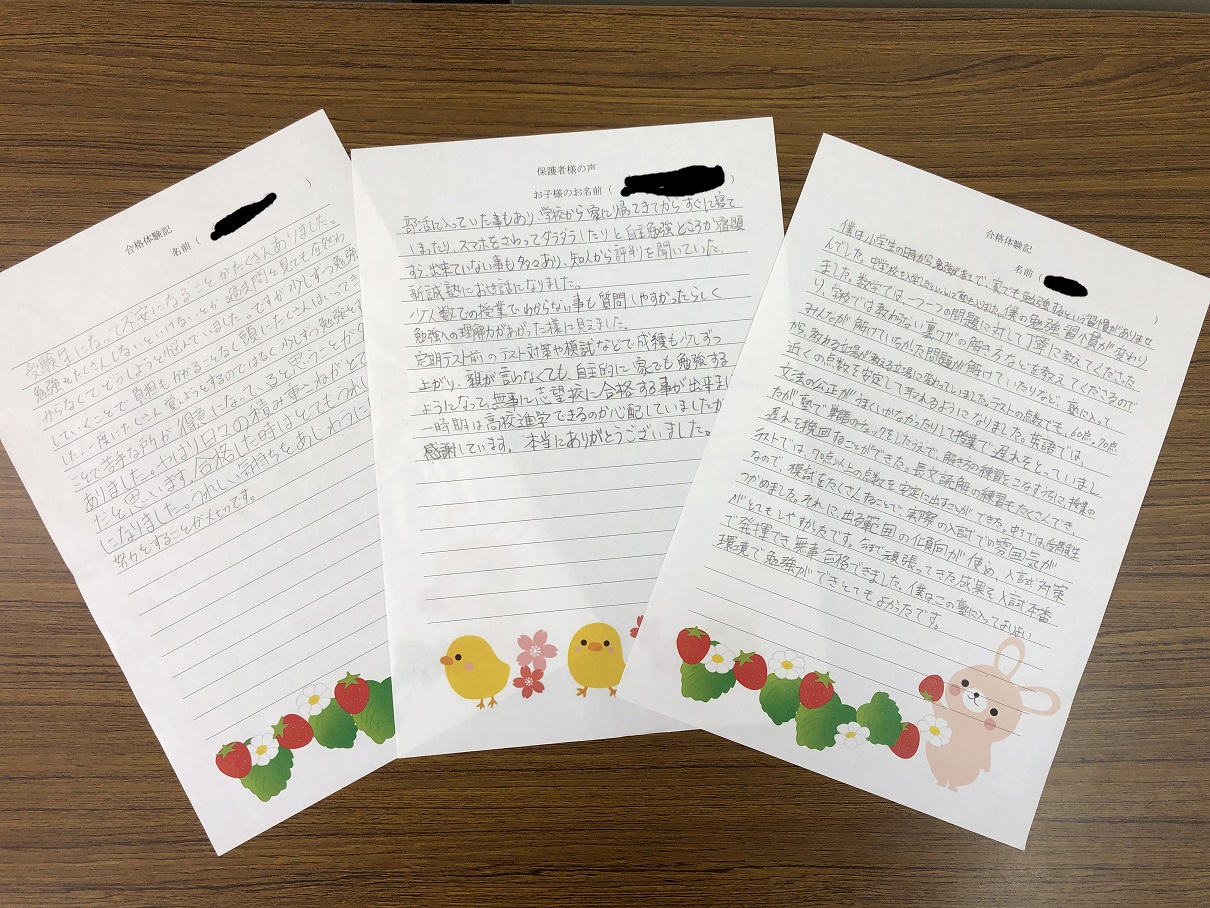 合格体験記
名前（　　　）
受験生になって不安になることがたくさんありました。
勉強もたくさんしないといけないとか過去問を見ても全然わ
からなくてどうしようと悩んでいました。ですが少しずつ勉強
していくことで
一度にたくさん覚えようとするのではなく少しずつ勉強をす
ることで苦手な所が得意になっていると思うことが
ありました。やはり日々の積み重ねがとても
だと思います。合格した時はとてもうれし
になりました。うれしい気持ちをあじわうに
努力をすることが大切です。
保護者様の声
お子様のお名前（　　　）
部活に入っていた事もあり、学校から家に帰ってきてからすぐに寝て
しまったり、スマホをさわってダラダラしたりと自主勉強どころか宿題
すら出来ていない事も多々あり、知人から評判を聞いていた
新誠塾にお世話になりました。
少人数での授業でわからない事も質問しやすかったらしく
勉強への理解力があがった様に見えました。
定期テスト前のテスト対策や模試などで成績も少しずつ
上がり、親が言わなくても、自主的に家でも勉強する
ようになって無事に志望校に合格する事が出来まし
一時期は高校進学できるのか心配していましたが
感謝しています。本当にありがとうございました。
合格体験記
名前（　　　）
僕は小学生の時から勉強が苦手で、家でも勉強するという習慣がありませ
んでした。中学校に入学し、僕の勉強習慣が変わり
ました。数学では一つ一つの問題に対して丁寧に教えてくださった
り、学校では教わらない裏ワザの解き方などを教えてくださるので
みんなが解けていなかった問題が解けていたりなど、塾に入って
から教わる立場が教える立場に変わっていました。テストの点数でも、60点、70点
近くの点数を安定して取れるようになりました。英語では、
文法の公正がうまくいかなかったりして授業で遅れをとっていまし
たが塾で単語のチェックをしたうえで、解き方の練習をこなすうちに、授業の
遅れを挽回することができた。長文読解の練習もたくさんでき、
テストでは、70点以上の点数を安定に出すことができた。中3では受験生
なので、模試をたくさんすることで、実際の入試での雰囲気が
つかめました。それに、出る範囲の傾向が使め、入試対策
がとてもしやすかったです。今まで頑張ってきた成果を入試本番
で発揮でき無事合格できました。僕はこの塾に入ってよりよい
環境で勉強ができとてもよかったです。